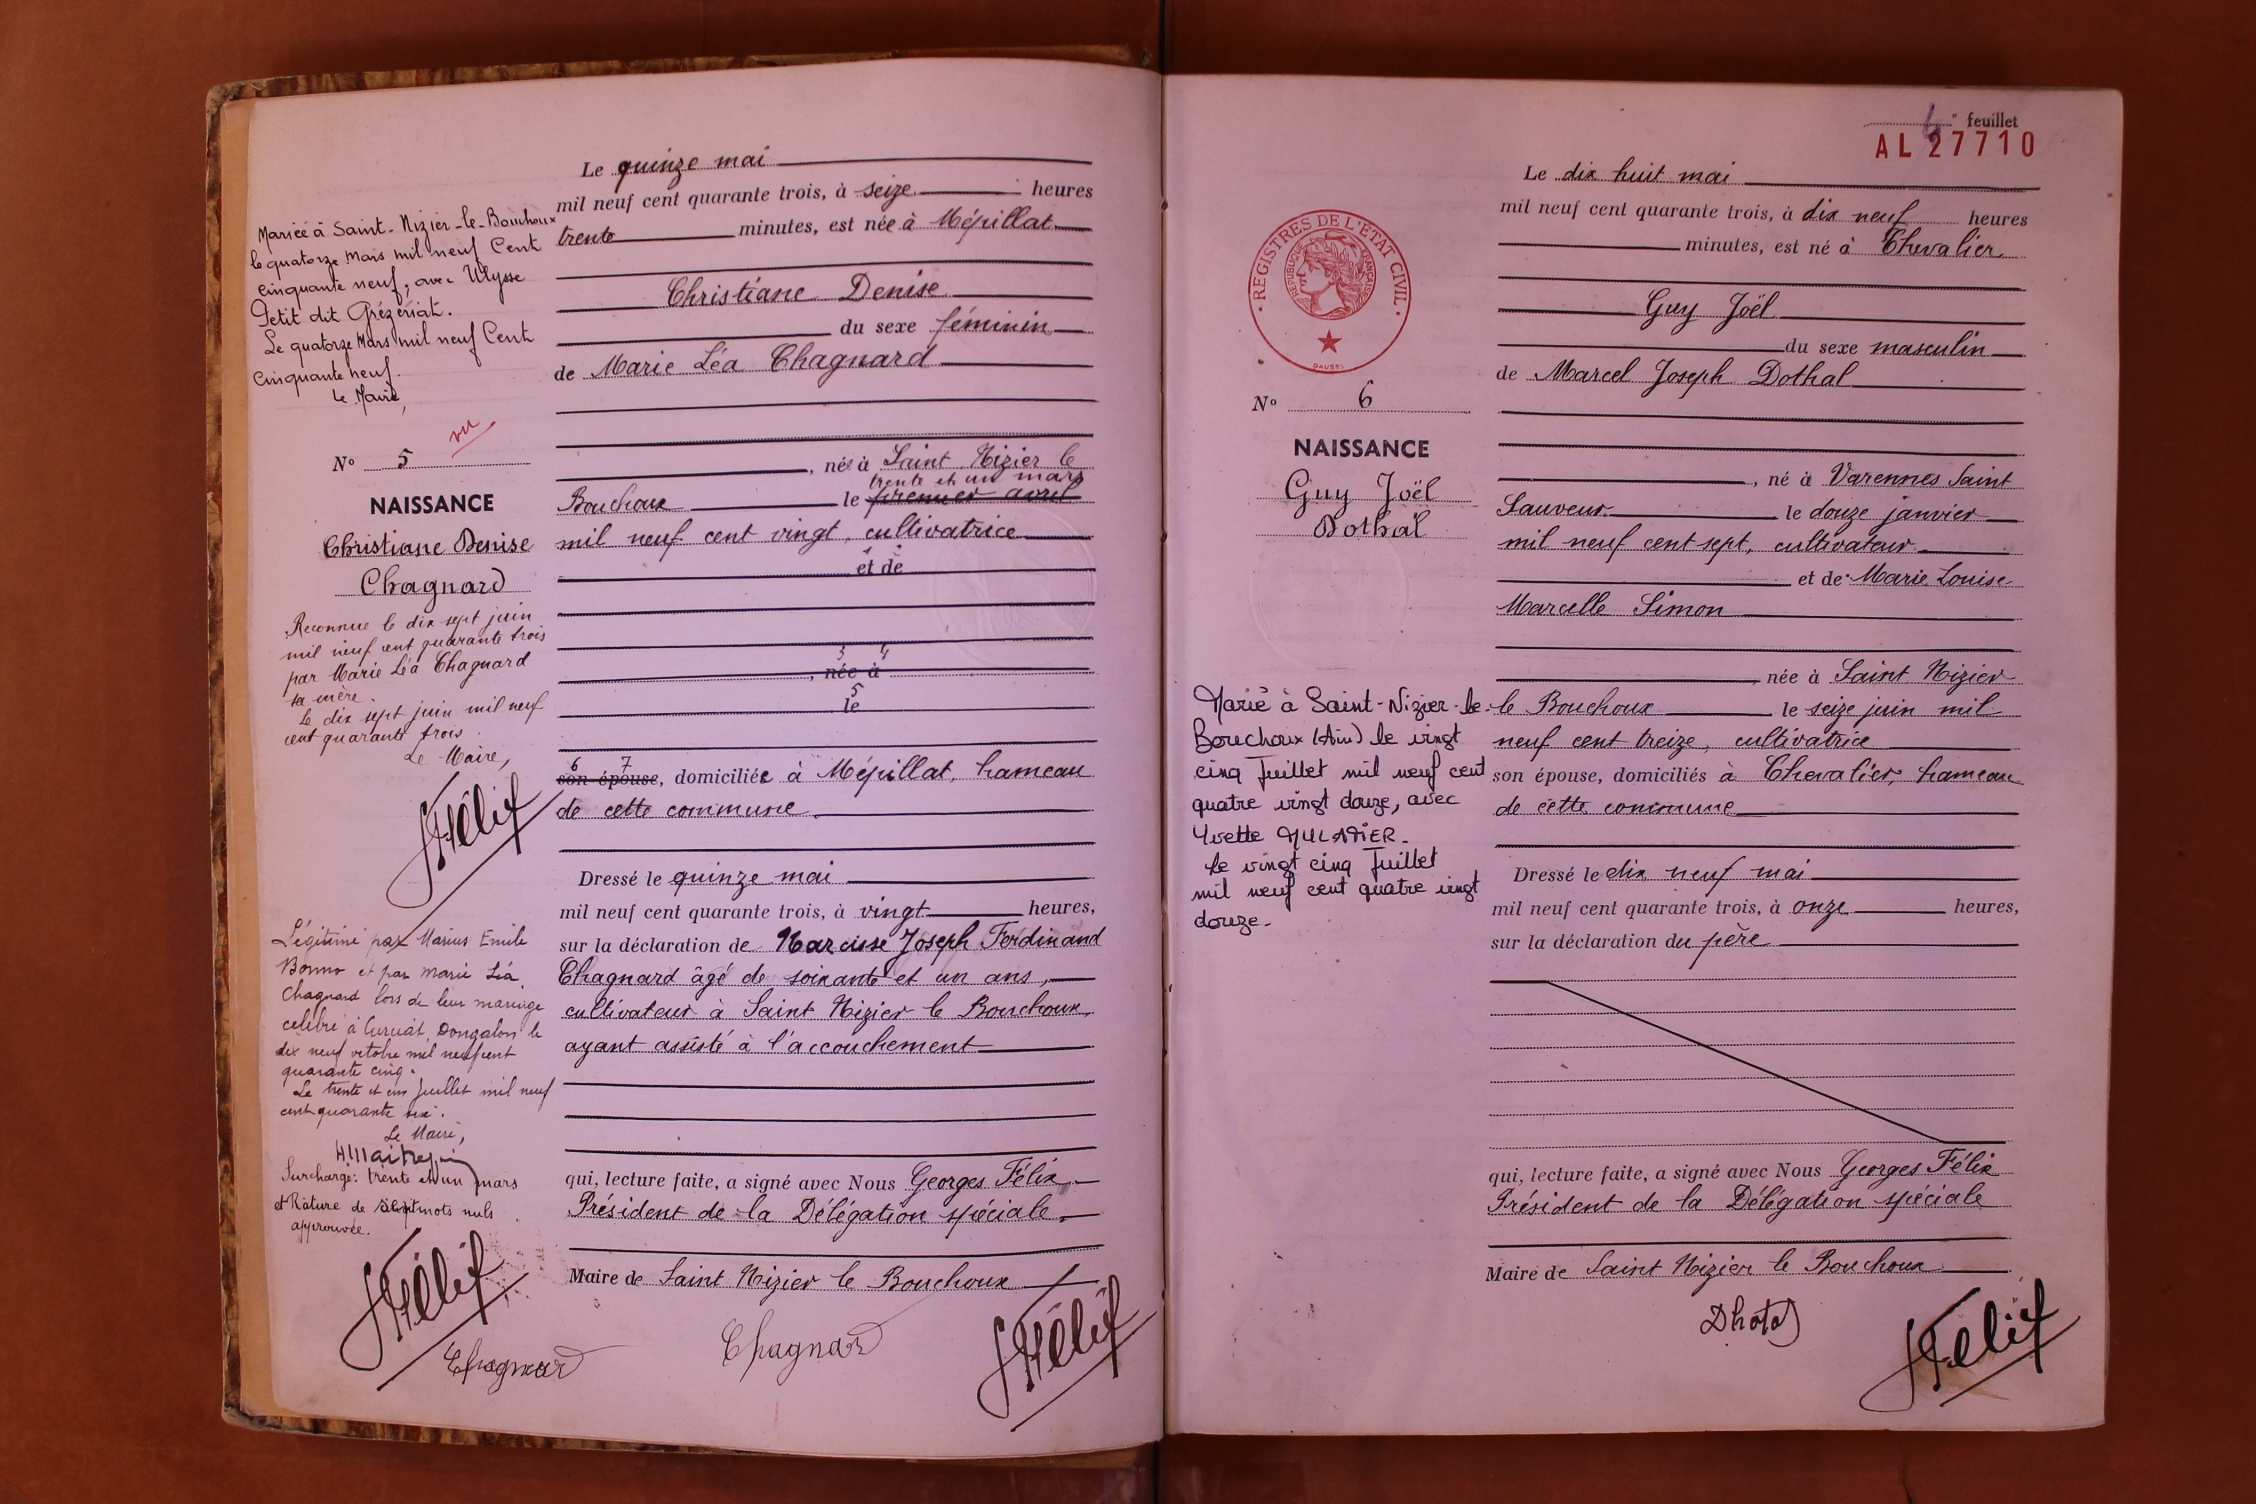 Le quinze mai
mil neuf cent quarante trois, à seize heures
trente minutes, est née à Mépillat
Christiane Denise
du sexe féminin
de Marie Léa Chagnard
, née à Saint Nizier le
trente et un mars
Bouchoux le premier avril
mil neuf cent vingt, cultivatrice
et de
3 4
, née à
5
le
6 7
son épouse, domiciliée à Mépillat, hameau
de cette commune
Dressé le quinze mai
mil neuf cent quarante trois, à vingt heures,
sur la déclaration de Narcisse Joseph Ferdinand
Chagnard âgé de soixante et un ans,
cultivateur à Saint Nizier le Bouchoux,
ayant assisté à l'accouchement
qui, lecture faite, a signé avec Nous Georges Félix
Président de la Délégation spéciale,
Maire de Saint Nizier le Bouchoux
Chagnard
GFélix
Mariée à Saint-Nizier-le-Bouchoux
le quatorze Mars mil neuf Cent
cinquante neuf, avec Ulysse
Petit dit Grézériat.
Le quatorze Mars mil neuf Cent
Cinquante neuf.
Le Maire,
vu
No 5
NAISSANCE
Christiane Denise
Chagnard
Reconnue le dix sept juin
mil neuf cent quarante trois
par Marie Léa Chagnard
sa mère.
Le dix sept juin mil neuf
cent quarante trois
Le Maire,
GFélix
Légitimé par Marius Emile
et par Marie Léa
Chagnard lors de leur mariage
célébré à Curciat Dongalon le
dix neuf octobre mil neuf cent
quarante cinq.
Le trente et un Juillet mil neuf
cent quarante six.
Le Maire,
Surcharge: trente et un mars
et Rature de sept mots nuls
approuvée.
GFélix
Chagnard
6e feuillet
AL 27710
REGISTRES DE L'ETAT CIVIL
REPUBLIQUE FRANÇAISE
No 6
NAISSANCE
Guy Joël
Dothal
Marié à Saint-Nizier-le-
Bouchoux (Ain) le vingt
cinq Juillet mil neuf cent
quatre vingt douze, avec
Yvette MULATIER.
Le vingt cinq Juillet
mil neuf cent quatre vingt
douze.
Le dix huit mai
mil neuf cent quarante trois, à dix neuf heures
minutes, est né à Chevalier
Guy Joël
du sexe masculin
de Marcel Joseph Dothal
, né à Varennes Saint
Sauveur le douze janvier
mil neuf cent sept, cultivateur
et de Marie Louise
Marcelle Simon
, née à Saint Nizier
le Bouchoux le seize juin mil
neuf cent treize, cultivatrice
son épouse, domiciliés à Chevalier, hameau
de cette commune
Dressé le dix neuf mai
mil neuf cent quarante trois, à onze heures,
sur la déclaration du père
qui, lecture faite, a signé avec Nous Georges Félix
Président de la Délégation spéciale
Maire de Saint Nizier le Bouchoux
GFélix